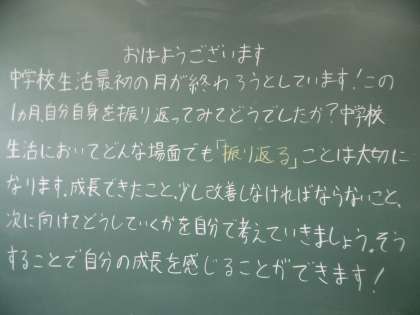 おはようございます
中学校生活最初の月が終わろうとしています!この
1ヵ月、自分自身を振り返ってみてどうでしたか?中学校
生活においてどんな場面でも「振り返る」ことは大切に
なります。成長できたこと、少し改善しなければならないこと、
次に向けてどうしていくかを自分で考えていきましょう。そう
することで自分の成長を感じることができます!